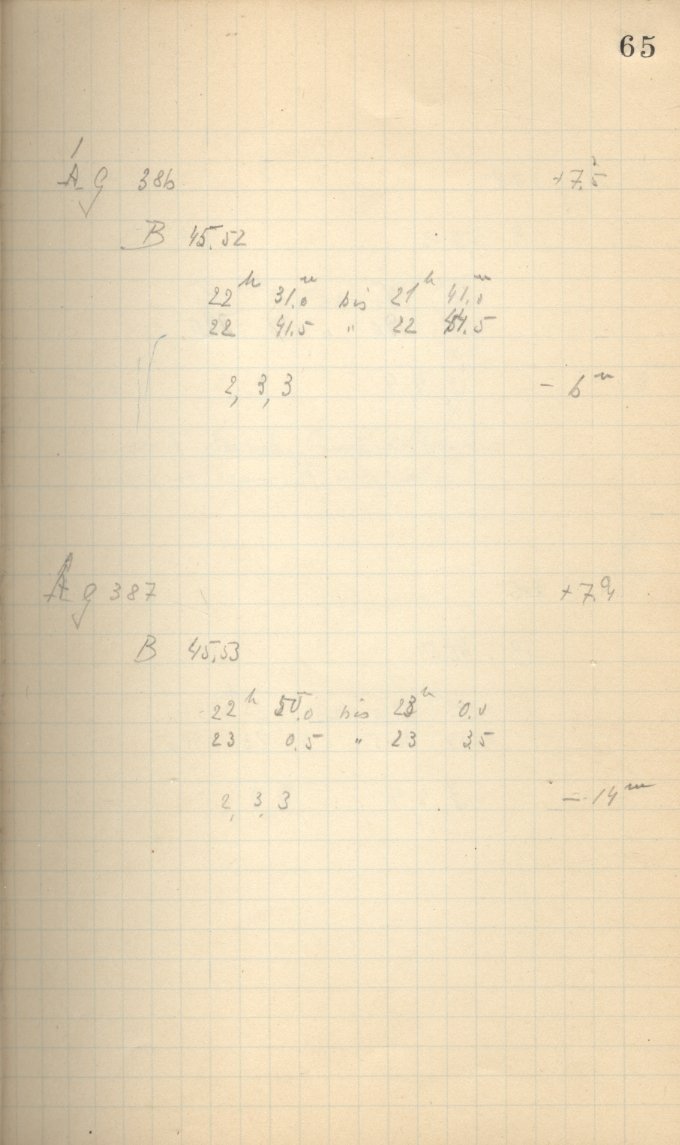 65
A g 386 +7.5
B 45.52
22h 31.0m bis 21h 41.0m
22 41.5 " 22 51.5
2, 3, 3 - 6m
A g 387 +7.4
B 45.53
22h 50.0 bis 23h 0.0
23 0.5 " 23 3.5
2, 3, 3 - 14m